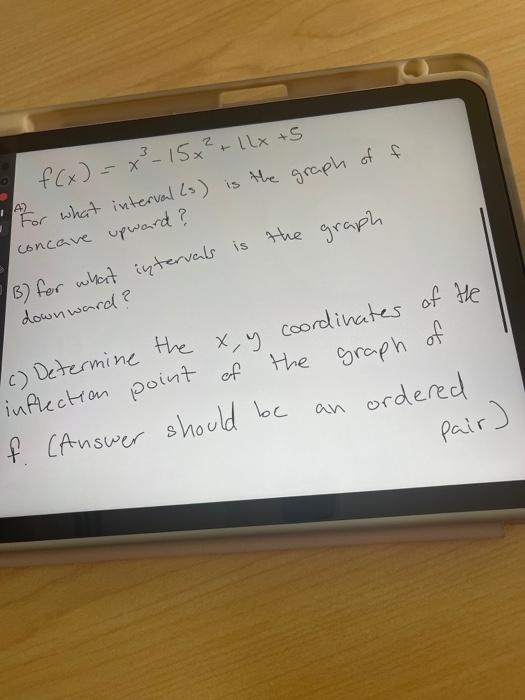 f(x) = x³ - 15x² + 11x + 5
A) For what interval(s) is the graph of f
concave upward?
B) for what intervals is the graph
downward?
c) Determine the x, y coordinates of the
inflection point of the graph of
f. (Answer should be an ordered
pair)